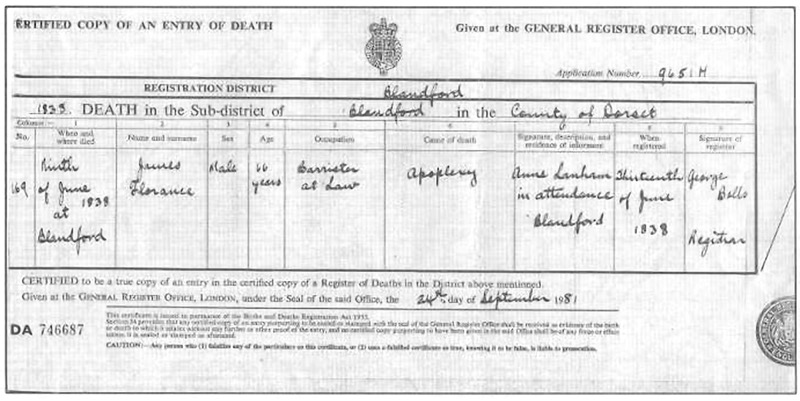 CERTIFIED COPY OF AN ENTRY OF DEATH
Given at the GENERAL REGISTER OFFICE, LONDON.
Application Number 9651H
REGISTRATION DISTRICT Blandford
1838. DEATH in the Sub-district of Blandford in the County of Dorset
Columns:— 1 2 3 4 5 6 7 8 9
No. When and where died Name and surname Sex Age Occupation Cause of death Signature, description, and residence of informant When registered Signature of registrar
169
Ninth
of June
1838
at
Blandford
James
Florance
Male
66
years
Barrister
at Law
Apoplexy
Anne Lanham
in attendance
Blandford
Thirteenth
of June
1838
George
Bells
Registrar
CERTIFIED to be a true copy of an entry in the certified copy of a Register of Deaths in the District above mentioned.
Given at the GENERAL REGISTER OFFICE, LONDON, under the Seal of the said Office, the 24th day of September 1981
DA 746687
This certificate is issued in pursuance of the Births and Deaths Registration Act 1953.
Section 34 provides that any certified copy of an entry purporting to be sealed or stamped with the seal of the General Register Office shall be received as evidence of the birth
or death to which it relates without any further or other proof of the entry, and no certified copy purporting to have been given in the said Office shall be of any force or effect
unless it is sealed or stamped as aforesaid.
CAUTION:—Any person who (1) falsifies any of the particulars on this certificate, or (2) uses a falsified certificate as true, knowing it to be false, is liable to prosecution.